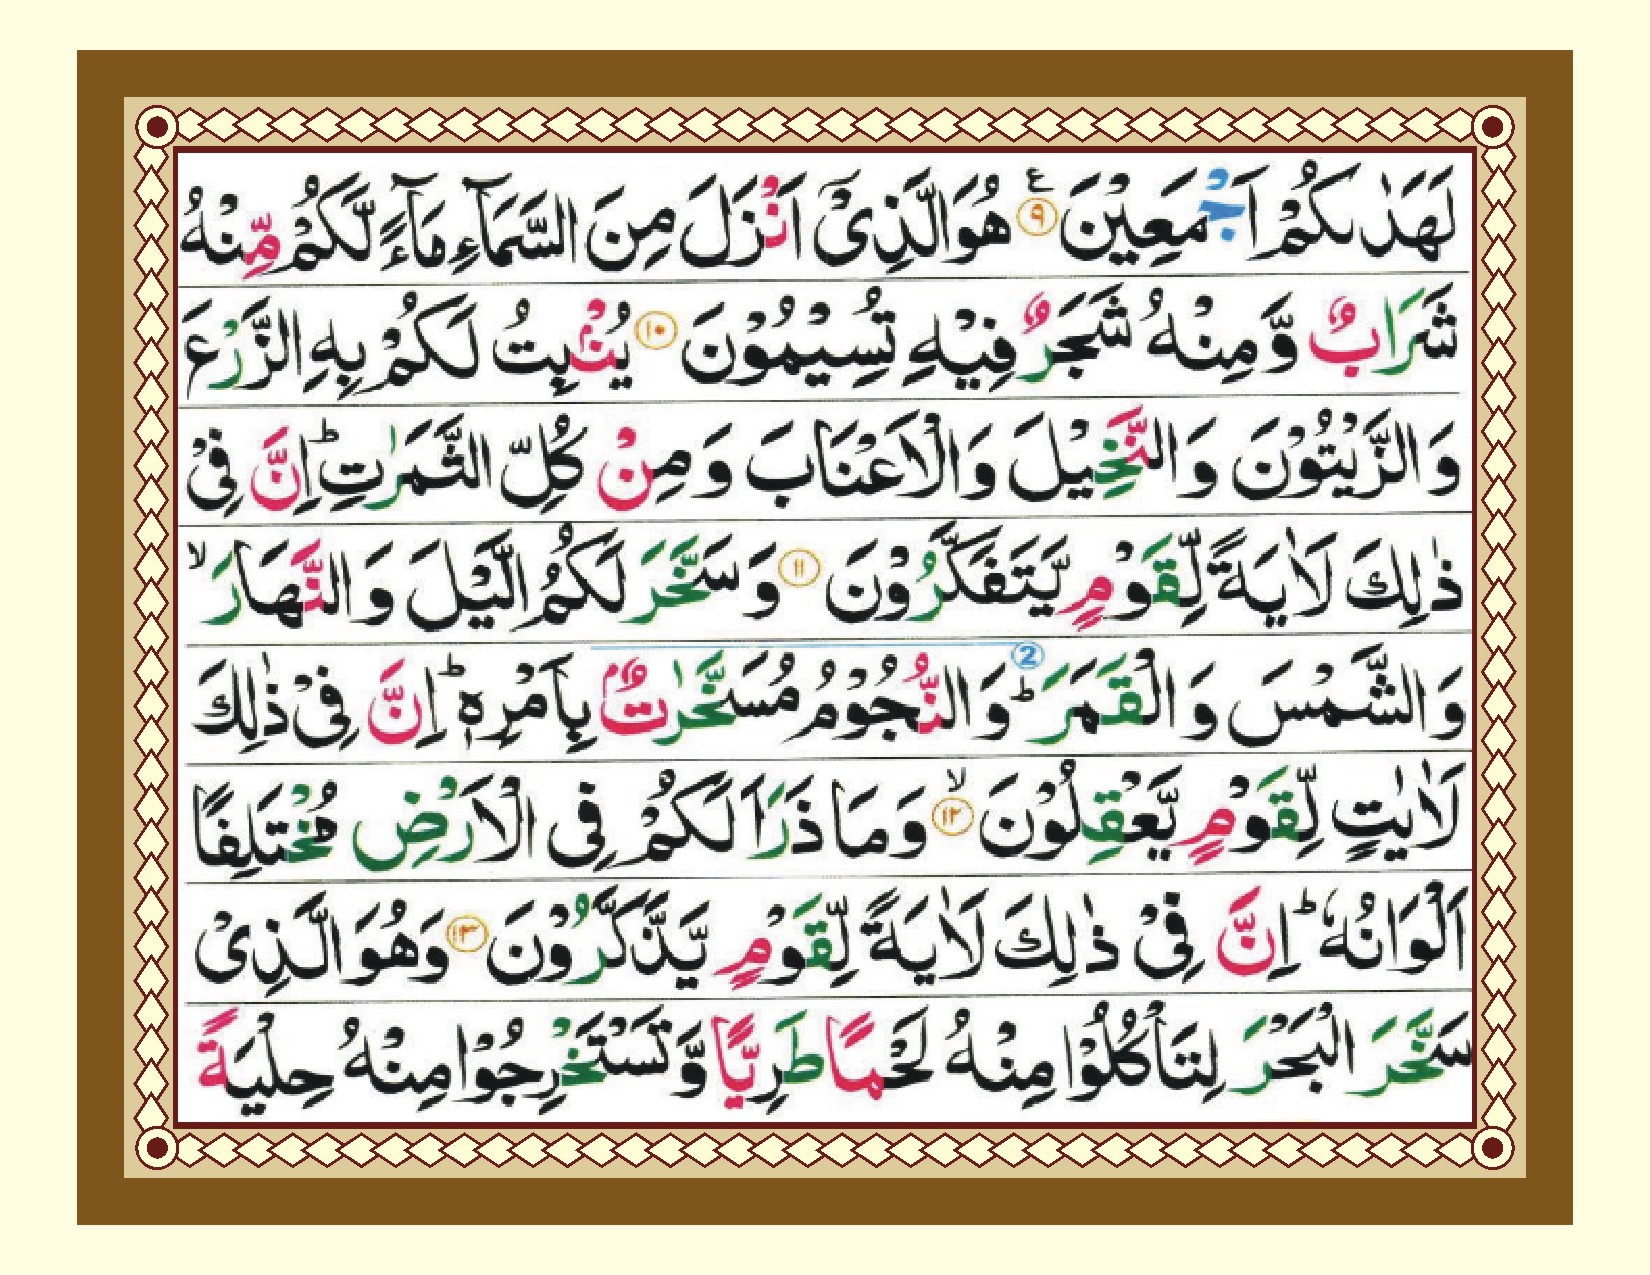 لَهَدٰىكُمْ اَجْمَعِيْنَ ۹ ع هُوَالَّذِیْۤ اَنْزَلَ مِنَ السَّمَآءِ مَآءً لَّكُمْ مِّنْهُ
شَرَابٌ وَّمِنْهُ شَجَرٌ فِيْهِ تُسِيْمُوْنَ ۱۰ يُنْۢبِتُ لَكُمْ بِهِ الزَّرْعَ
وَالزَّيْتُوْنَ وَالنَّخِيْلَ وَالْاَعْنَابَ وَمِنْ كُلِّ الثَّمَرٰتِ ؕ اِنَّ فِیْ
ذٰلِكَ لَاٰيَةً لِّقَوْمٍ يَّتَفَكَّرُوْنَ ۱۱ وَسَخَّرَ لَكُمُ الَّيْلَ وَالنَّهَارَ ۙ
وَالشَّمْسَ وَالْقَمَرَ ؕ 2 وَالنُّجُوْمُ مُسَخَّرٰتٌۢ بِاَمْرِهٖ ؕ اِنَّ فِیْ ذٰلِكَ
لَاٰيٰتٍ لِّقَوْمٍ يَّعْقِلُوْنَ ۙ ۱۲ وَمَا ذَرَاَ لَكُمْ فِی الْاَرْضِ مُخْتَلِفًا
اَلْوَانُهٗ ؕ اِنَّ فِیْ ذٰلِكَ لَاٰيَةً لِّقَوْمٍ يَّذَّكَّرُوْنَ ۱۳ وَهُوَالَّذِیْ
سَخَّرَ الْبَحْرَ لِتَاْكُلُوْا مِنْهُ لَحْمًا طَرِيًّا وَّتَسْتَخْرِجُوْا مِنْهُ حِلْيَةً